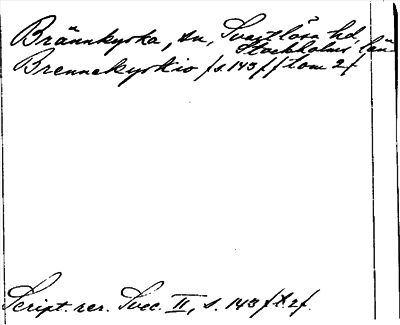 Brännkyrka, sn, Svartlösa hd,
Stockholms län
Brennekyrkio /s. 143 f/ tom 2/
Script. rer. Svec. II, s. 143 f t. 2/.